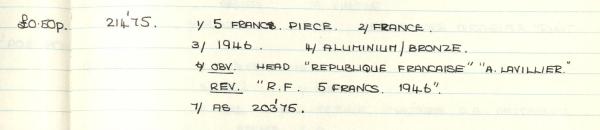 £0.50p. 214'75. 1/ 5 FRANCS. PIECE. 2/ FRANCE.
3/ 1946. 4/ ALUMINIUM/BRONZE.
5/ OBV. HEAD "REPUBLIQUE FRANCAISE" "A. LAVILLIER."
REV. "R.F. 5 FRANCS. 1946".
7/ AS 203'75.